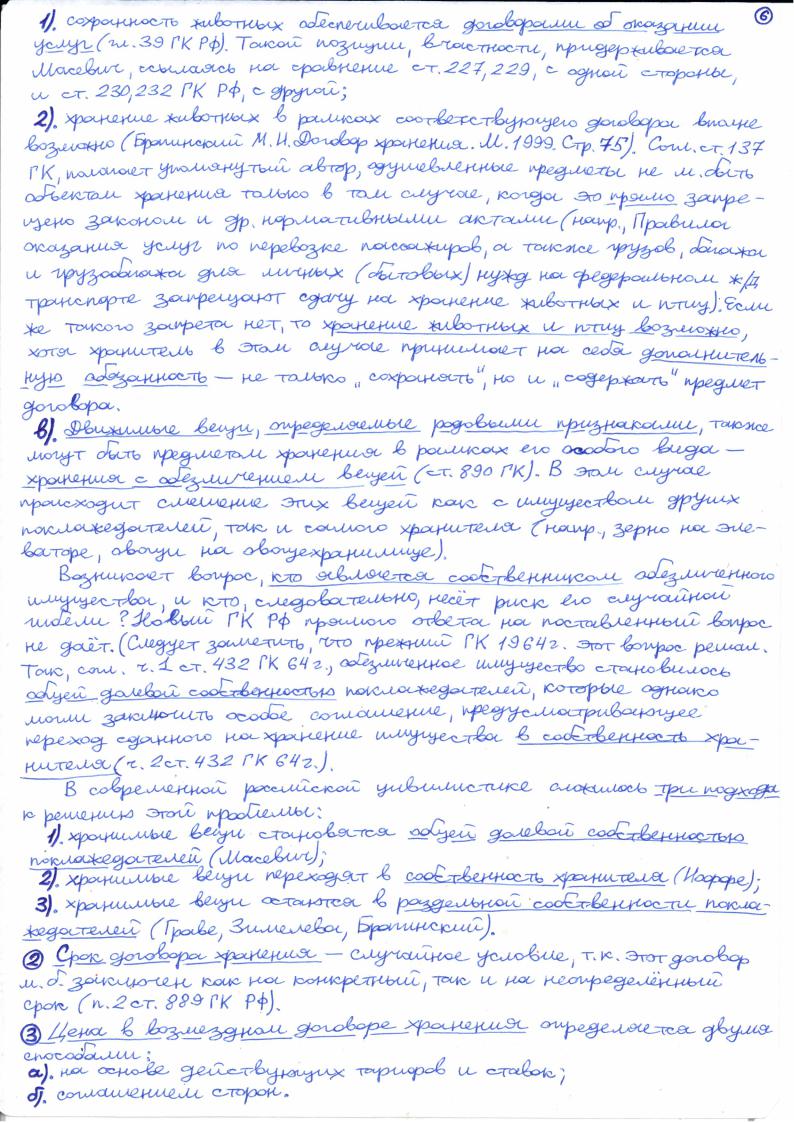 6
1). сохранность животных обеспечивается договорами об оказании
услуг (гл. 39 ГК РФ). Такой позиции, в частности, придерживается
Масевич, ссылаясь на сравнение ст. 227, 229, с одной стороны,
и ст. 230, 232 ГК РФ, с другой;
2). хранение животных в рамках соответствующего договора вполне
возможно (Брагинский М.И. Договор хранения. М. 1999. Стр. 75). Согл. ст. 137
ГК, полагает упомянутый автор, одушевленные предметы не м. быть
объектом хранения только в том случае, когда это прямо запре-
щено законом и др. нормативными актами (напр., Правила
оказания услуг по перевозке пассажиров, а также грузов, багажа
и грузобагажа для личных (бытовых) нужд на федеральном ж/д
транспорте запрещают сдачу на хранение животных и птиц). Если
же такого запрета нет, то хранение животных и птиц возможно,
хотя хранитель в этом случае принимает на себя дополнитель-
ную обязанность – не только „сохранять“, но и „содержать“ предмет
договора.
в). Движимые вещи, определяемые родовыми признаками, также
могут быть предметом хранения в рамках его особого вида –
хранения с обезличением вещей (ст. 890 ГК). В этом случае
происходит смешение этих вещей как с имуществом других
поклажедателей, так и самого хранителя (напр., зерно на эле-
ваторе, овощи на овощехранилище).
Возникает вопрос, кто является собственником обезличенного
имущества, и кто, следовательно, несёт риск его случайной
гибели? Новый ГК РФ прямого ответа на поставленный вопрос
не даёт. (Следует заметить, что прежний ГК 1964г. этот вопрос решал.
Так, согл. ч. 1 ст. 432 ГК 64г., обезличенное имущество становилось
общей долевой собственностью поклажедателей, которые однако
могли заключить особое соглашение, предусматривающее
переход сданного на хранение имущества в собственность хра-
нителя (ч. 2 ст. 432 ГК 64г.).
В современной российской цивилистике сложилось три подхода
к решению этой проблемы:
1). хранимые вещи становятся общей долевой собственностью
поклажедателей (Масевич);
2). хранимые вещи переходят в собственность хранителя (Иоффе);
3). хранимые вещи остаются в раздельной собственности покла-
жедателей (Граве, Зимелева, Брагинский).
2 Срок договора хранения – случайное условие, т.к. этот договор
м. б. заключен как на конкретный, так и на неопределённый
срок (п. 2 ст. 889 ГК РФ).
3 Цена в возмездном договоре хранения определяется двумя
способами:
а). на основе действующих тарифов и ставок;
б). соглашением сторон.